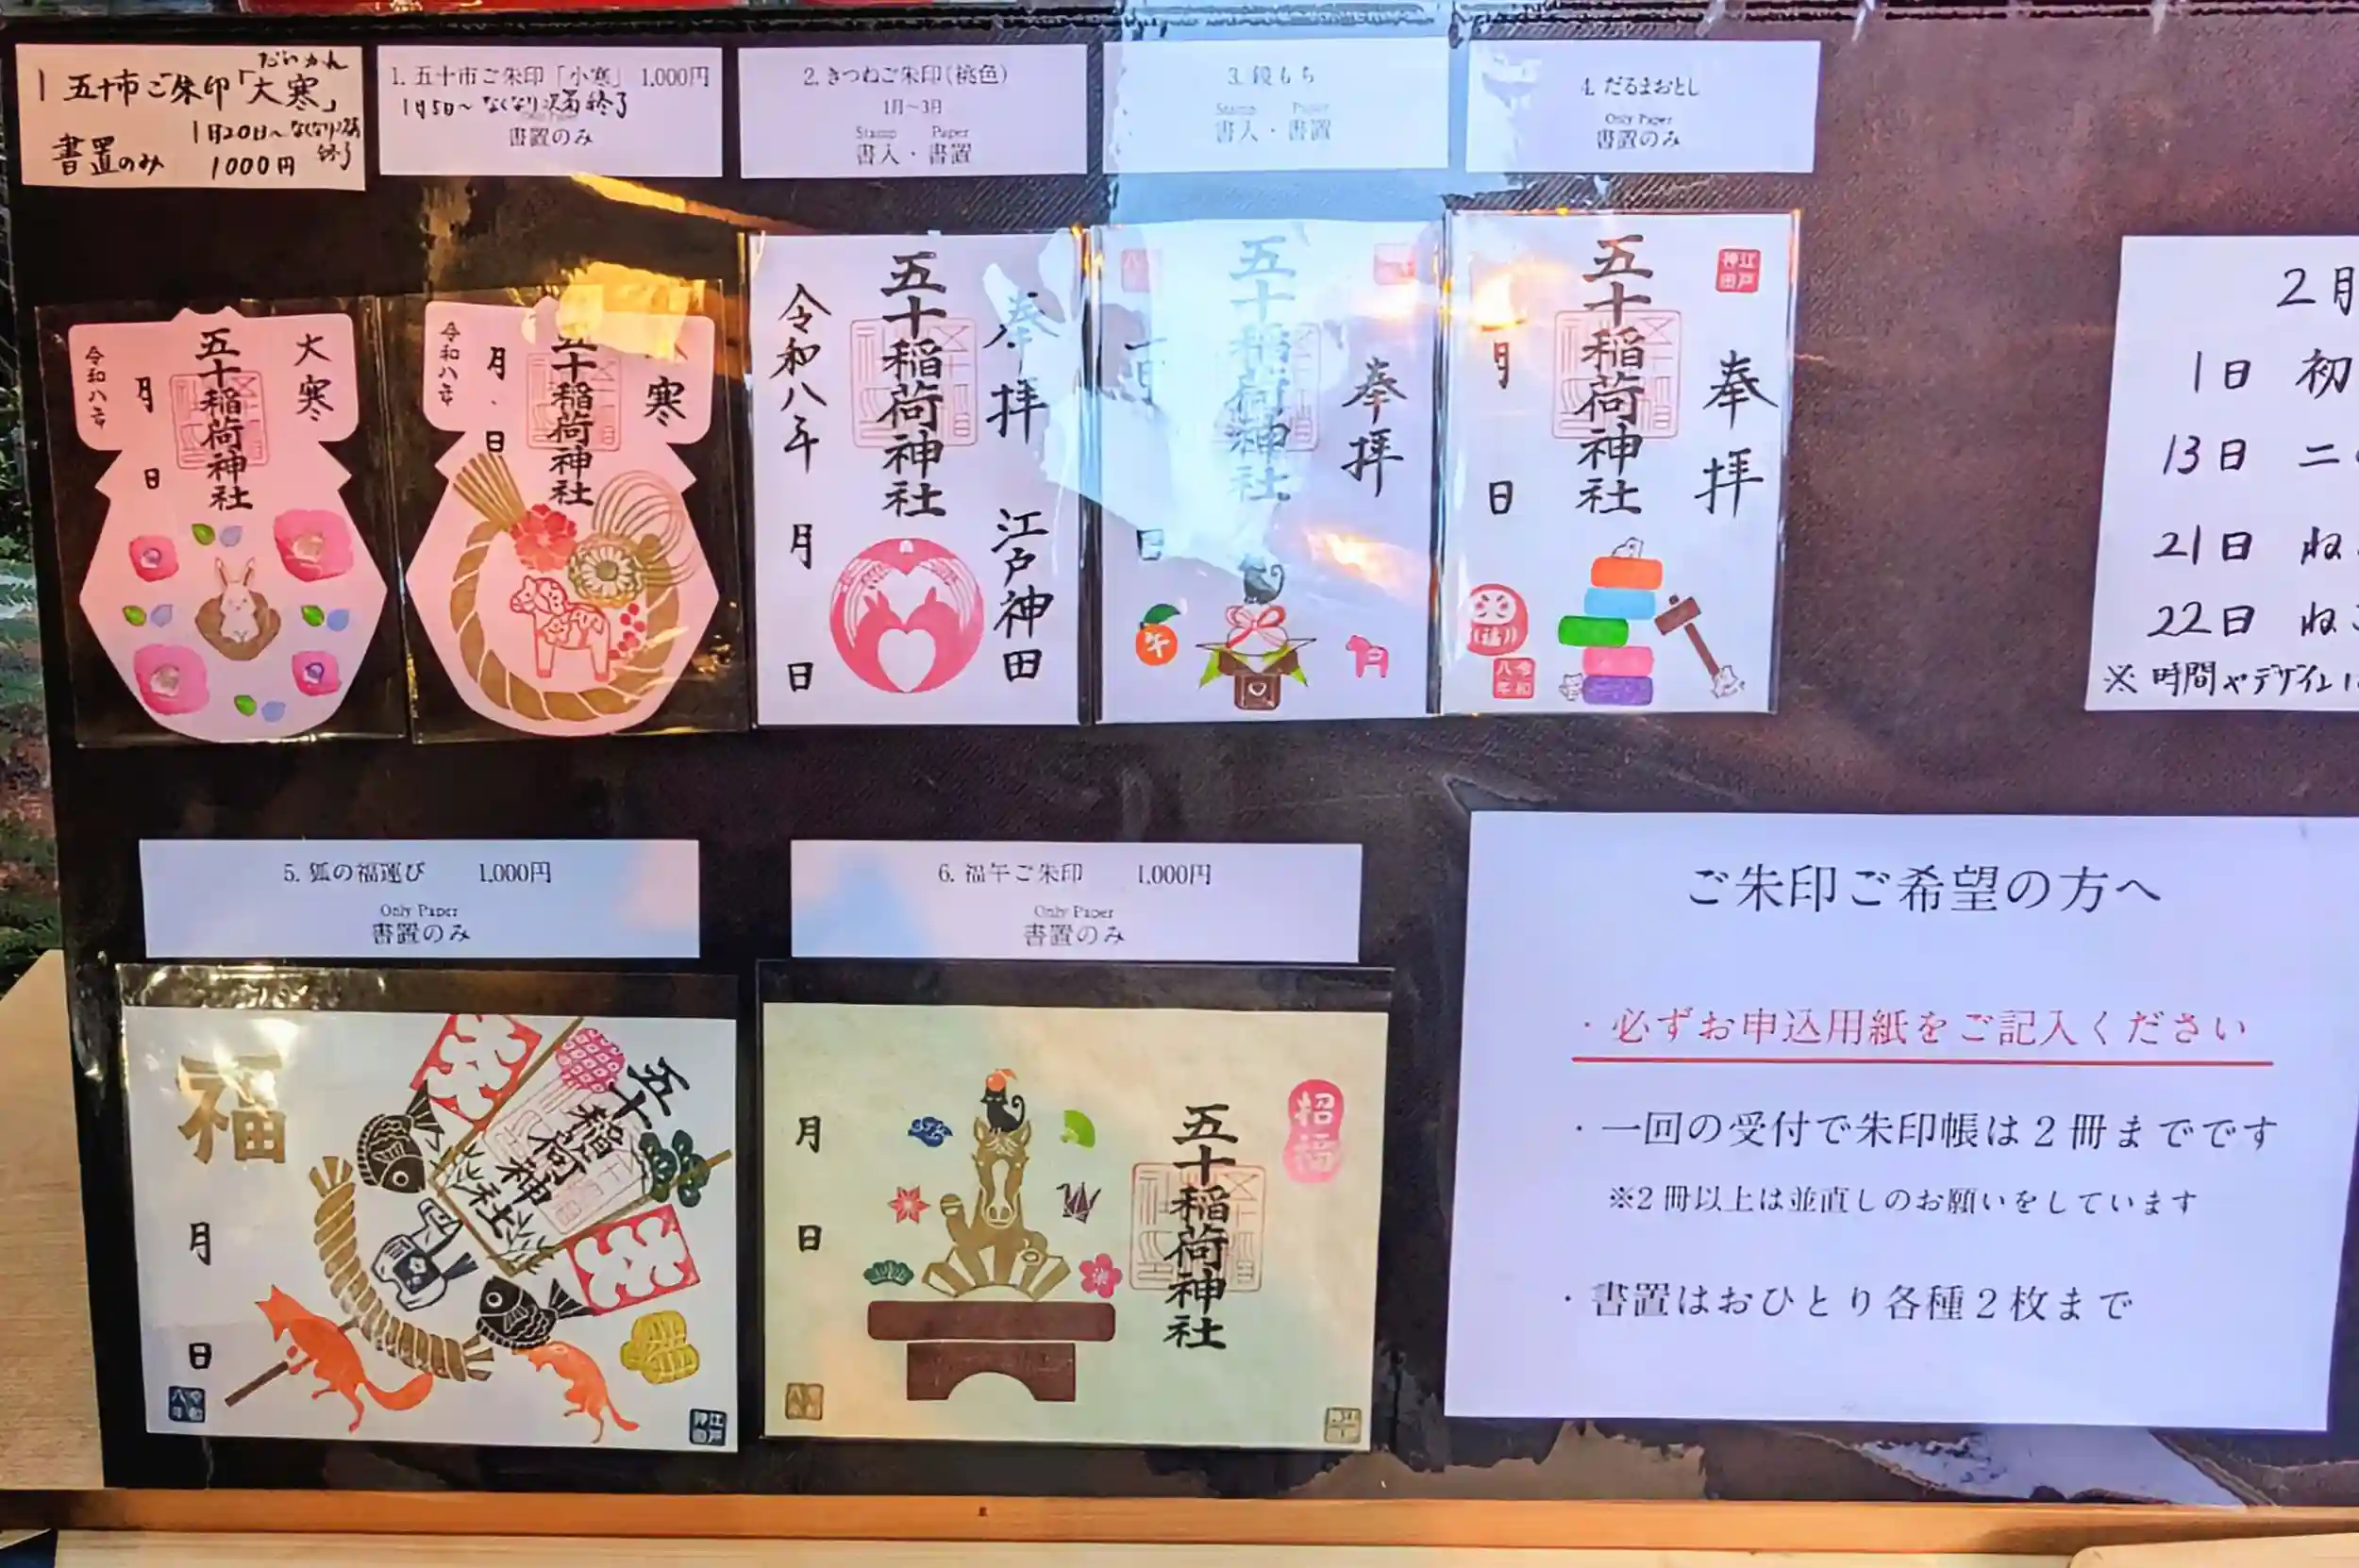 だいかん
1 五十市ご朱印「大寒」
1月20日〜なくなり次第
終了
書置のみ 1000円
1. 五十市ご朱印「小寒」 1,000円
1月5日〜なくなり次第終了
書置のみ
2. きつねご朱印(桃色)
1月～3月
Stamp Paper
書入・書置
3. 鏡もち
Stamp Paper
書入・書置
4. だるまおとし
Only Paper
書置のみ
大寒
五十稲荷神社
月 日
令和八年
寒
五十稲荷神社
月 日
令和八年
奉拝
江戸神田
五十稲荷神社
令和八年
月 日
奉拝
五十稲荷神社
日
午
江戸神田
奉拝
五十稲荷神社
月 日
福
令和八年
2月
1日 初
13日 二
21日 ね
22日 ねこ
※時間やデザインは
5. 狐の福運び 1,000円
Only Paper
書置のみ
6. 福午ご朱印 1,000円
Only Paper
書置のみ
福
月 日
五十稲荷神社
令和八年
江戸神田
招福
五十稲荷神社
月 日
ご朱印ご希望の方へ
・必ずお申込用紙をご記入ください
・一回の受付で朱印帳は2冊までです
※2冊以上は並直しのお願いをしています
・書置はおひとり各種2枚まで